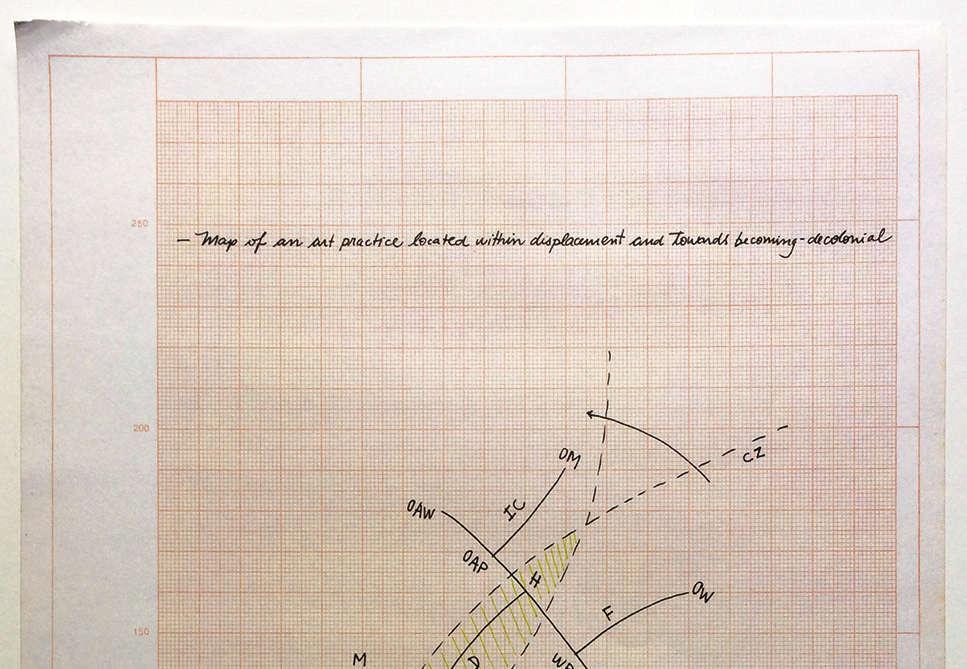 250
– Map of an art practice located within displacement and towards becoming-decolonial
200
CZ
OM
IC
OAW
OAP
H
F
OW
150
M
D